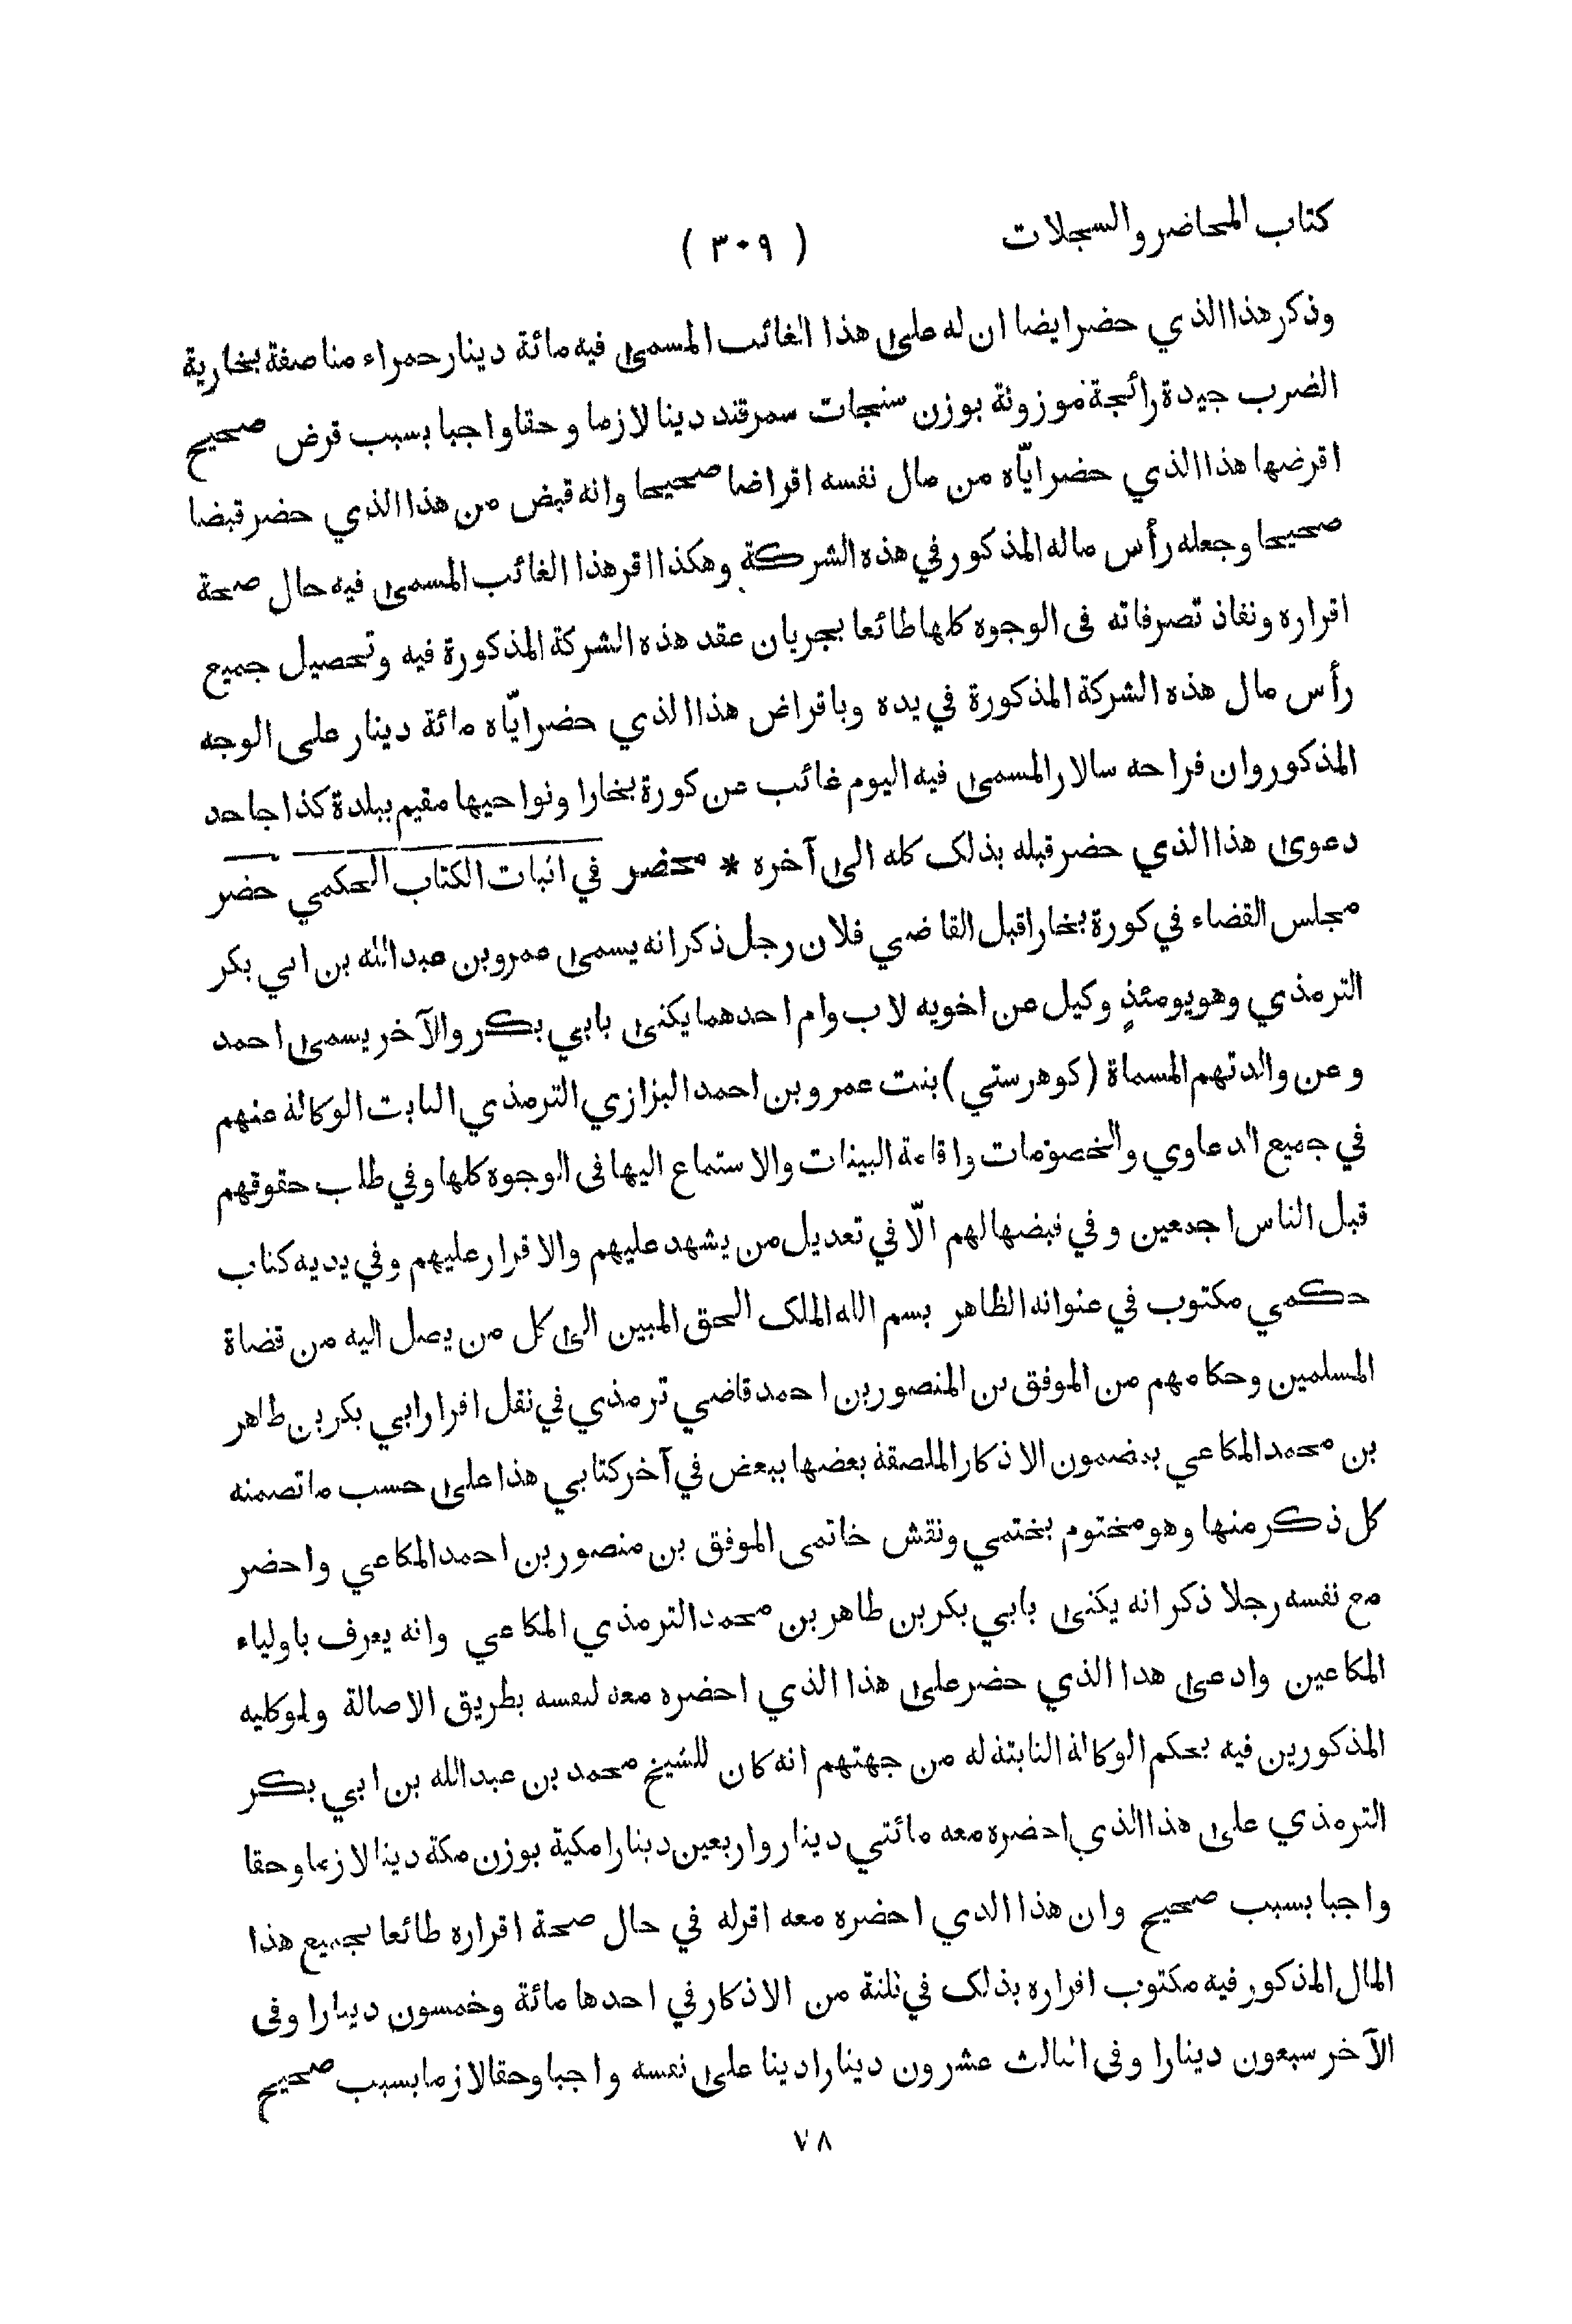 كتاب المحاضر والسجلات ( ٣٠٩ )
وذكر هذا الذي حضر ايضا ان له على هذا الغائب المسمى فيه مائة دينار حمراء مناصفة بخارية
الضرب جيدة رائجة موزونة بوزن سنجات سمرقند دينا لازما وحقا واجبا بسبب قرض صحيح
اقرضها هذا الذي حضر ايّاه من مال نفسه اقراضا صحيحا وانه قبض من هذا الذي حضر قبضا
صحيحا وجعله رأس ماله المذكور في هذه الشركة وهكذا اقر هذا الغائب المسمى فيه حال صحة
اقراره ونفاذ تصرفاته فى الوجوه كلها طائعا بجريان عقد هذه الشركة المذكورة فيه وتحصيل جميع
رأس مال هذه الشركة المذكورة في يده وباقراض هذا الذي حضر ايّاه مائة دينار على الوجه
المذكور وان قراحه سالار المسمى فيه اليوم غائب عن كورة بخارا ونواحيها مقيم ببلدة كذا جاحد
دعوى هذا الذي حضر قبله بذلك كله الى آخره * محضر في اثبات الكتاب الحكمي حضر
مجلس القضاء في كورة بخارا قبل القاضي فلان رجل ذكر انه يسمى عمرو بن عبد الله بن ابي بكر
الترمذي وهو يومئذٍ وكيل عن اخويه لاب وام احدهما يكنى بابي بكر والآخر يسمى احمد
وعن والدتهم المسماة (كوهرستي) بنت عمرو بن احمد البزازي الترمذي الثابت الوكالة عنهم
في جميع الدعاوي والخصومات واقامة البينات والاستماع اليها فى الوجوه كلها وفي طلب حقوقهم
قبل الناس اجمعين وفي قبضها لهم الّا في تعديل من يشهد عليهم والاقرار عليهم وفي يديه كتاب
حكمي مكتوب في عنوانه الظاهر بسم الله الملك الحق المبين الى كل من يصل اليه من قضاة
المسلمين وحكامهم من الموفق بن المنصور بن احمد قاضي ترمذي في نقل اقرار ابي بكر بن طاهر
بن محمد المكاعي بمضمون الاذكار الملصقة بعضها ببعض في آخر كتابي هذا على حسب ما تضمنه
كل ذكر منها وهو مختوم بختمي ونقش خاتمى الموفق بن منصور بن احمد المكاعي واحضر
مع نفسه رجلا ذكر انه يكنى بابي بكر بن طاهر بن محمد الترمذي المكاعي وانه يعرف باولياء
المكاعين وادعى هذا الذي حضر على هذا الذي احضره معه لنفسه بطريق الاصالة ولموكليه
المذكورين فيه بحكم الوكالة الثابتة له من جهتهم انه كان للشيخ محمد بن عبد الله بن ابي بكر
الترمذي على هذا الذي احضره معه مائتي دينار واربعين دينارا مكية بوزن مكة دينا لازما وحقا
واجبا بسبب صحيح وان هذا الذي احضره معه اقر له في حال صحة اقراره طائعا بجميع هذا
المال المذكور فيه مكتوب اقراره بذلك في ثلثة من الاذكار في احدها مائة وخمسون دينارا وفى
الآخر سبعون دينارا وفى الثالث عشرون دينارا دينا على نفسه واجبا وحقا لازما بسبب صحيح
٧٨